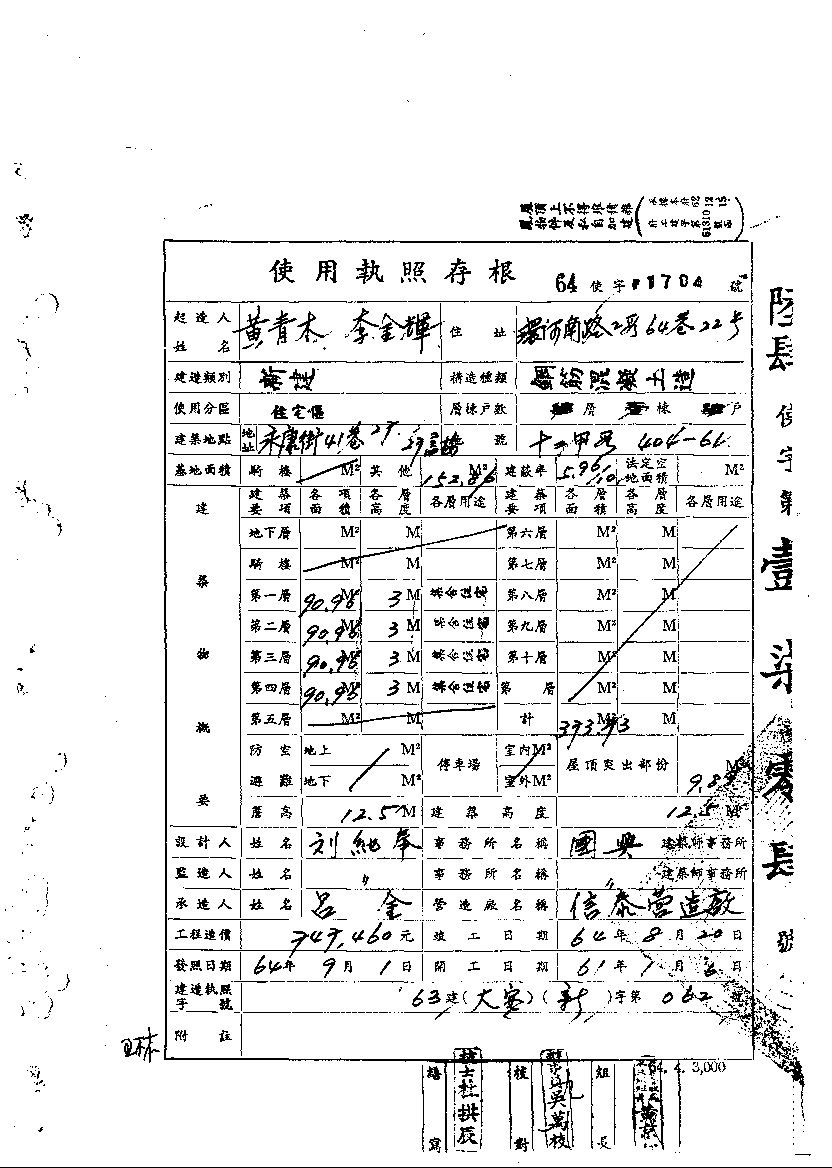 屋頂上不得堆積雜
亂物件及私自加建
使用執照存根 64 使字 1704 號
起造人姓名 黃青木 李金輝 住址 環河南路2段64巷22号
建造類別 新建 構造種類 鋼筋混凝土造
使用分區 住宅區 層棟戶數 層 棟 戶
建築地點 地址 永康街41巷27. 29 號 404-61
基地面積 騎樓 M² 其他 152.86 M² 建蔽率 5.96/10 法定空地面積 M²
建築物概要
建築要項 各項面積 各層高度 各層用途 建築要項 各層面積 各層高度 各層用途
地下層 M² M 第六層 M² M
騎樓 M² M 第七層 M² M
第一層 90.98 M² 3 M 集合住宅 第八層 M² M
第二層 90.98 M² 3 M 集合住宅 第九層 M² M
第三層 90.98 M² 3 M 集合住宅 第十層 M² M
第四層 90.98 M² 3 M 集合住宅 第 層 M² M
第五層 M² M 計 M²
防空避難 地上 M² 地下 M² 停車場 室內M² 室外M² 屋頂突出部份 M²
簷高 12.5 M 建築高度 12.5 M
設計人 姓名 事務所名稱 國興 建築師事務所
監造人 姓名 〃 事務所名稱 〃 建築師事務所
承造人 姓名 呂金 營造廠名稱 信泰营造廠
工程造價 747,460元 竣工日期 64年8月20日
發照日期 64年9月1日 開工日期 61年1月6日
建造執照字號 63建(大安)(新)字第062號
附註
64. 4. 3,000
繕寫 技士杜拱辰 校對 吳萬枝 組長
陸肆使字第壹柒零肆號